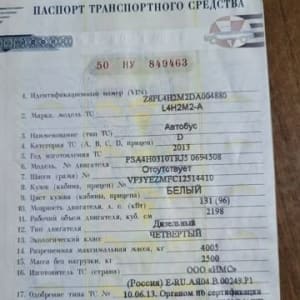 ПАСПОРТ ТРАНСПОРТНОГО СРЕДСТВА
50 НУ 849463
1. Идентификационный номер (VIN) Z8PL4H2M2DA004880
2. Марка, модель ТС L4H2M2-A
3. Наименование (тип ТС) Автобус
4. Категория ТС (А, В, С, D, прицеп) D
5. Год изготовления ТС 2013
6. Модель, № двигателя PSA4H03101RJ5 0694508
7. Шасси (рама) № Отсутствует
8. Кузов (кабина, прицеп) № VF3YEZMFC12514410
9. Цвет кузова (кабины, прицепа) БЕЛЫЙ
10. Мощность двигателя, л. с. (кВт) 131 (96)
11. Рабочий объем двигателя, куб. см 2198
12. Тип двигателя Дизельный
13. Экологический класс ЧЕТВЕРТЫЙ
14. Разрешенная максимальная масса, кг 4005
15. Масса без нагрузки, кг 2500
16. Изготовитель ТС (страна) ООО «ИМС»
(Россия) E-RU.АЯ04.В.00249.Р1
17. Одобрение типа ТС № 10.06.13. Орган по сертификации